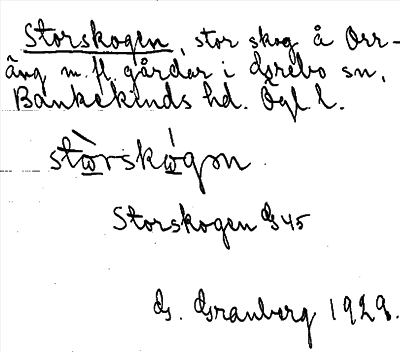 Storskogen, stor skog å Orr-
äng m. fl. gårdar i Grebo sn,
Bankekinds hd. Ögl l.
stòrskógən
Storskogen G 45
G. Granberg 1929.